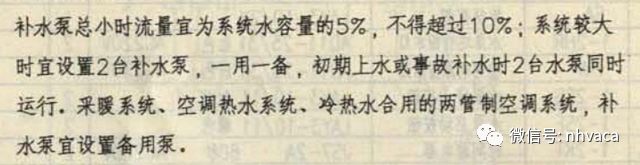 补水泵总小时流量宜为系统水容量的5%，不得超过10%；系统较大
时宜设置2台补水泵，一用一备，初期上水或事故补水时2台水泵同时
运行．采暖系统、空调热水系统、冷热水合用的两管制空调系统，补
水泵宜设置备用泵．
微信号: nhvaca